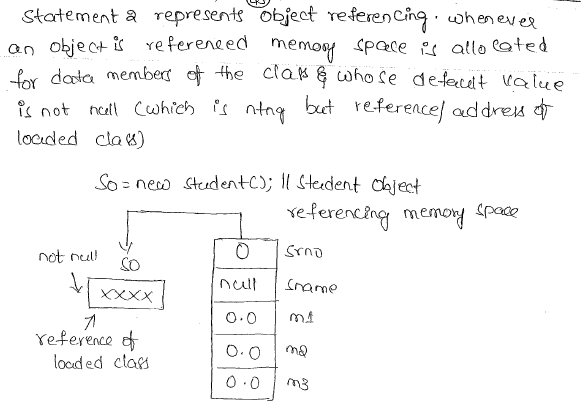 Statement 2 represents object referencing. whenever
an object is referenced memory space is allocated
for data members of the class & whose default value
is not null (which is ntng but reference/address of
loaded class)
So = new student(); // Student Object
referencing memory space
not null
so
xxxx
reference of
loaded class
0 srno
null sname
0.0 m1
0.0 m2
0.0 m3